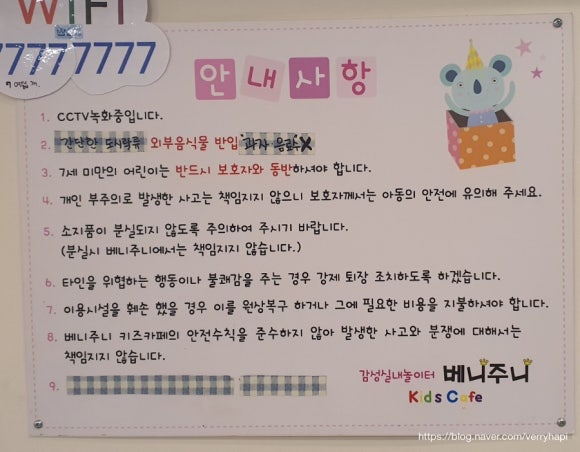 WiFi
77777777
안내사항
1. CCTV녹화중입니다.
2. 간단한 도시락류 외부음식물 반입 과자 음료 X
3. 7세 미만의 어린이는 반드시 보호자와 동반하셔야 합니다.
4. 개인 부주의로 발생한 사고는 책임지지 않으니 보호자께서는 아동의 안전에 유의해 주세요.
5. 소지품이 분실되지 않도록 주의하여 주시기 바랍니다.
(분실시 베니주니에서는 책임지지 않습니다.)
6. 타인을 위협하는 행동이나 불쾌감을 주는 경우 강제 퇴장 조치하도록 하겠습니다.
7. 이용시설을 훼손 했을 경우 이를 원상복구 하거나 그에 필요한 비용을 지불하셔야 합니다.
8. 베니주니 키즈카페의 안전수칙을 준수하지 않아 발생한 사고와 분쟁에 대해서는
책임지지 않습니다.
9.
감성실내놀이터 베니주니
Kids Cafe
https://blog.naver.com/verryhapi